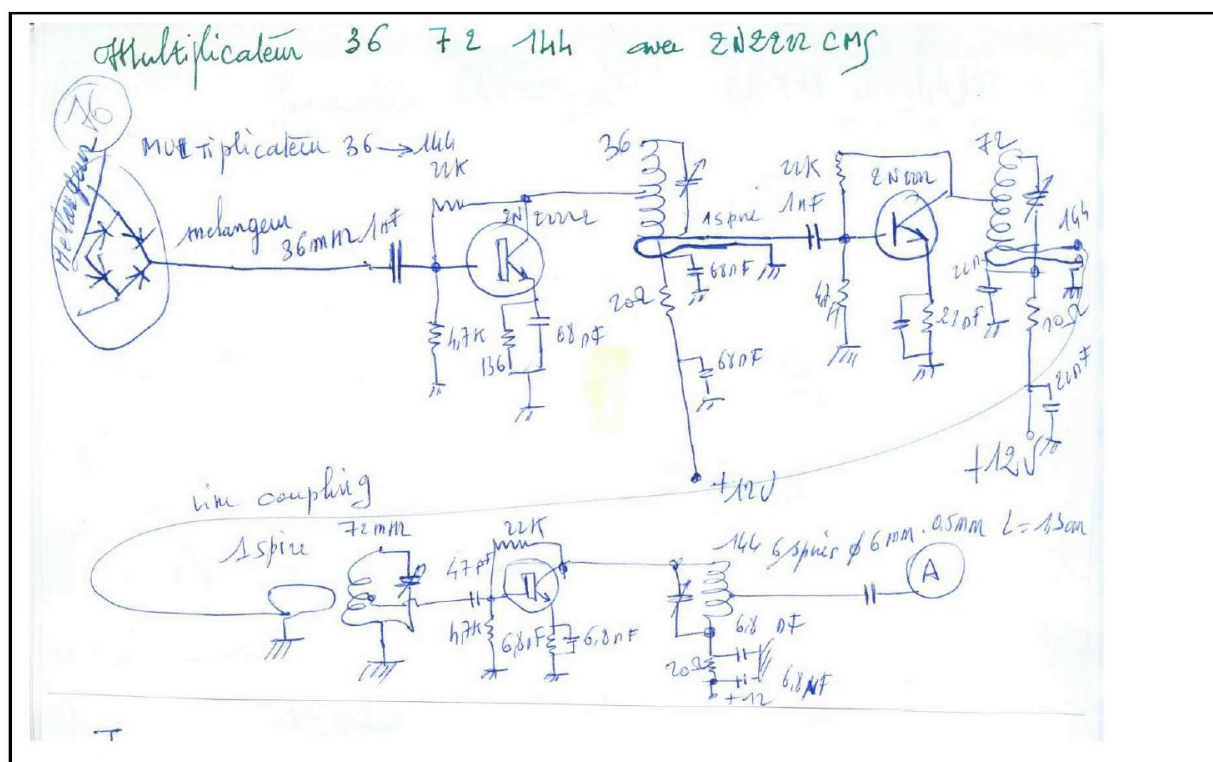 Multiplicateur 36 72 144 avec 2N2222 CMS
76
Melangeur
MULTiplicateur 36 → 144
22K
melangeur
36 mHz 1nF
2N 2222
4,7K
136
68nF
36
1 spire
68nF
20Ω
68nF
+12V
22K
1nF
2N2222
4,7K
22nF
72
144
22n
10Ω
22nF
+12V
Link coupling
1 spire
72 mHz
47pF
22K
4,7K
6,8nF
6,8nF
144 6 spires ø 6mm. 0,5mm L = 13mm
A
6,8 nF
20Ω
6,8nF
+12